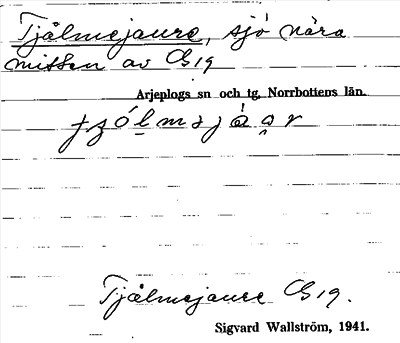 Tjålmejaure, sjö nära
mitten av G19
Arjeplogs sn och tg, Norrbottens län.
Tjålmejaure G19.
Sigvard Wallström, 1941.